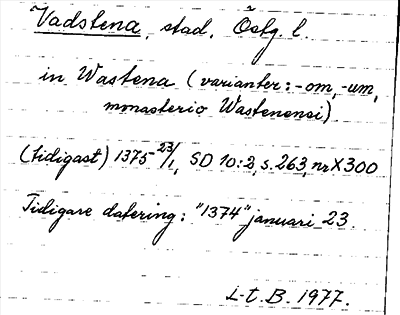 Vadstena, stad, Östg. l.
in Wastena (varianter: -om, -um,
monasterio Wastenensi).
(tidigast) 1375 23/1, SD 10:2, s. 263, nr X300
Tidigare datering: "1374" januari 23.
L-t. B. 1977.